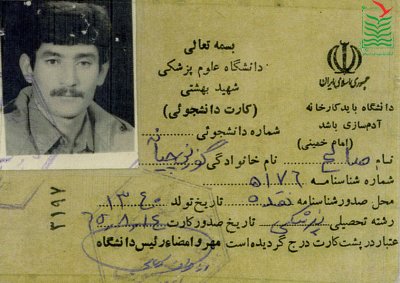 بسمه تعالی
دانشگاه علوم پزشکی
شهید بهشتی
(کارت دانشجوئی)
جمهوری اسلامی ایران
دانشگاه باید کارخانه
آدم‌سازی باشد
(امام خمینی)
شماره دانشجوئی
نام صالح نام خانوادگی
شماره شناسنامه ۵۱۷۶
محل صدور شناسنامه نقده تاریخ تولد ۱۳۴۰
رشته تحصیلی پزشکی تاریخ صدور کارت ۶۵،۸،۱۴
اعتبار در پشت کارت درج گردیده است مهر و امضاء رئیس دانشگاه
۳۱۹۷